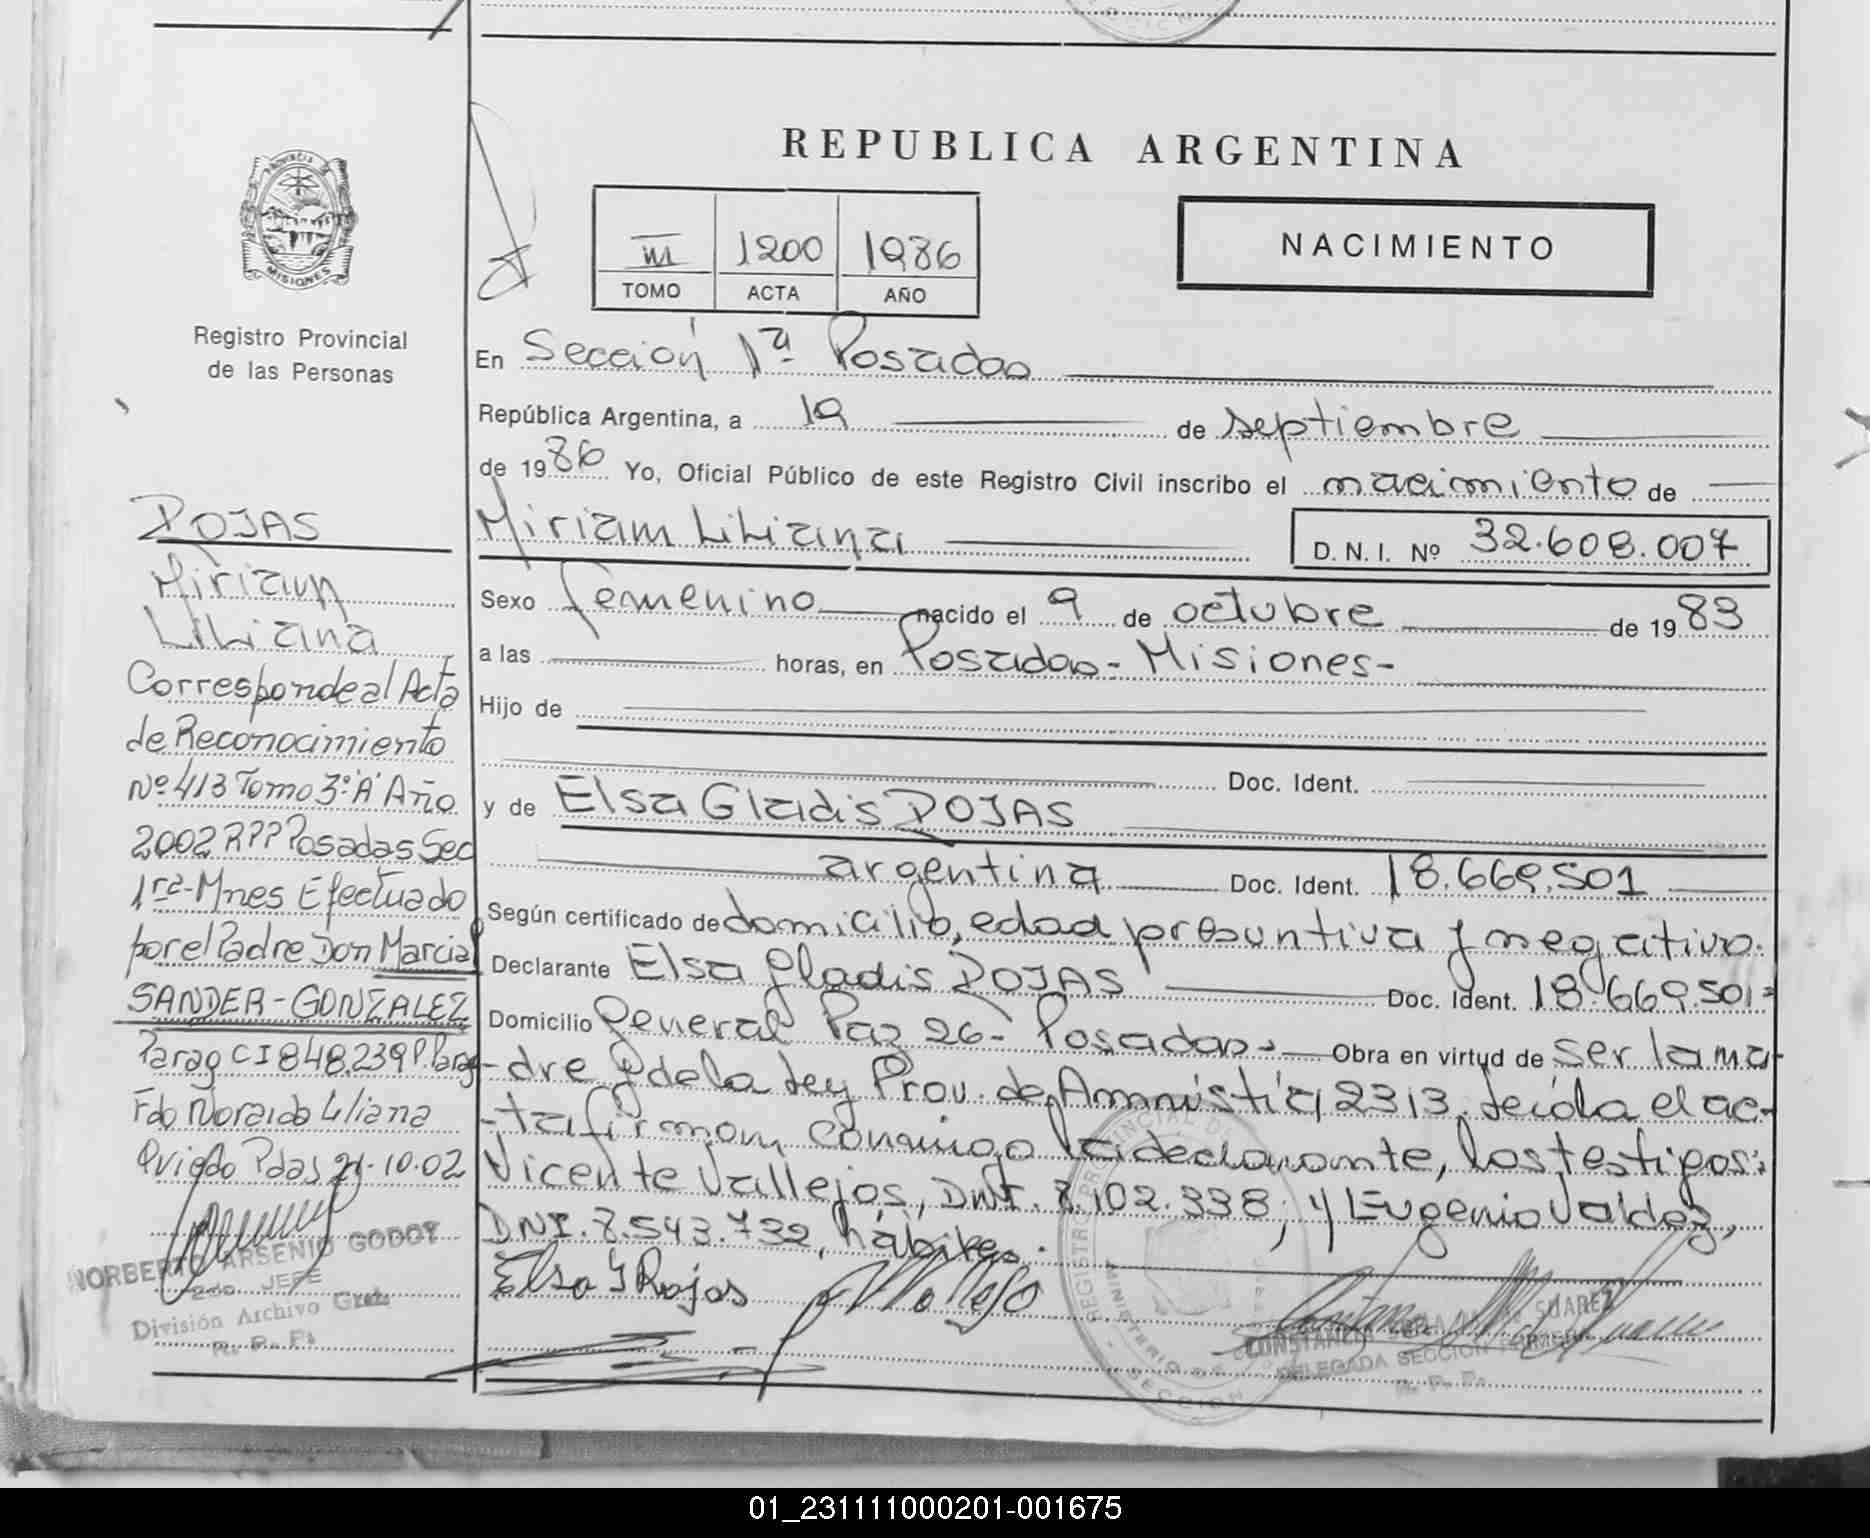 REPUBLICA ARGENTINA
III 1200 1986
TOMO ACTA AÑO
NACIMIENTO
PROVINCIA DE
MISIONES
Registro Provincial
de las Personas
En Sección 1ª Posadas
República Argentina, a 19 de septiembre
de 1986 Yo, Oficial Público de este Registro Civil inscribo el nacimiento de
Miriam Liliana
D. N. I. Nº 32.608.007
Sexo femenino nacido el 9 de octubre de 1983
a las horas, en Posadas - Misiones -
Hijo de
Doc. Ident.
y de Elsa Gladis ROJAS
argentina Doc. Ident. 18.669.501
Según certificado de domicilio, edad presuntiva y negativo.
Declarante Elsa Gladis ROJAS Doc. Ident. 18.669.501=
Domicilio General Paz 26 - Posadas.- Obra en virtud de ser la ma-
-dre y de la Ley Prov. de Amnistía 2313. Leída el ac-
-ta firman conmigo la declarante, los testigos:
Vicente Vallejos, DNI. 8.102.338; y Eugenio Valdez,
DNI. 8.543.732, hábiles.
Elsa G Rojas
CONSTANCIA SUAREZ
DELEGADA SECCION PRIMERA
R. P. P.
REGISTRO PROVINCIAL DE
MINISTERIO DE
SECCION
ROJAS
Miriam
Liliana
Corresponde al Acta
de Reconocimiento
Nº 413 Tomo 3º "A" Año
2002 RPP Posadas Sec
1ra - Mnes Efectuado
por el Padre Don Marcial
SANDER - GONZALEZ
Parag CI 848.239 P. Parag
Fdo Noraida Liliana
Oviedo Pdas 21-10-02
NORBERTO ARSENIO GODOY
2do. JEFE
División Archivo Gral.
R. P. P.
01_231111000201-001675